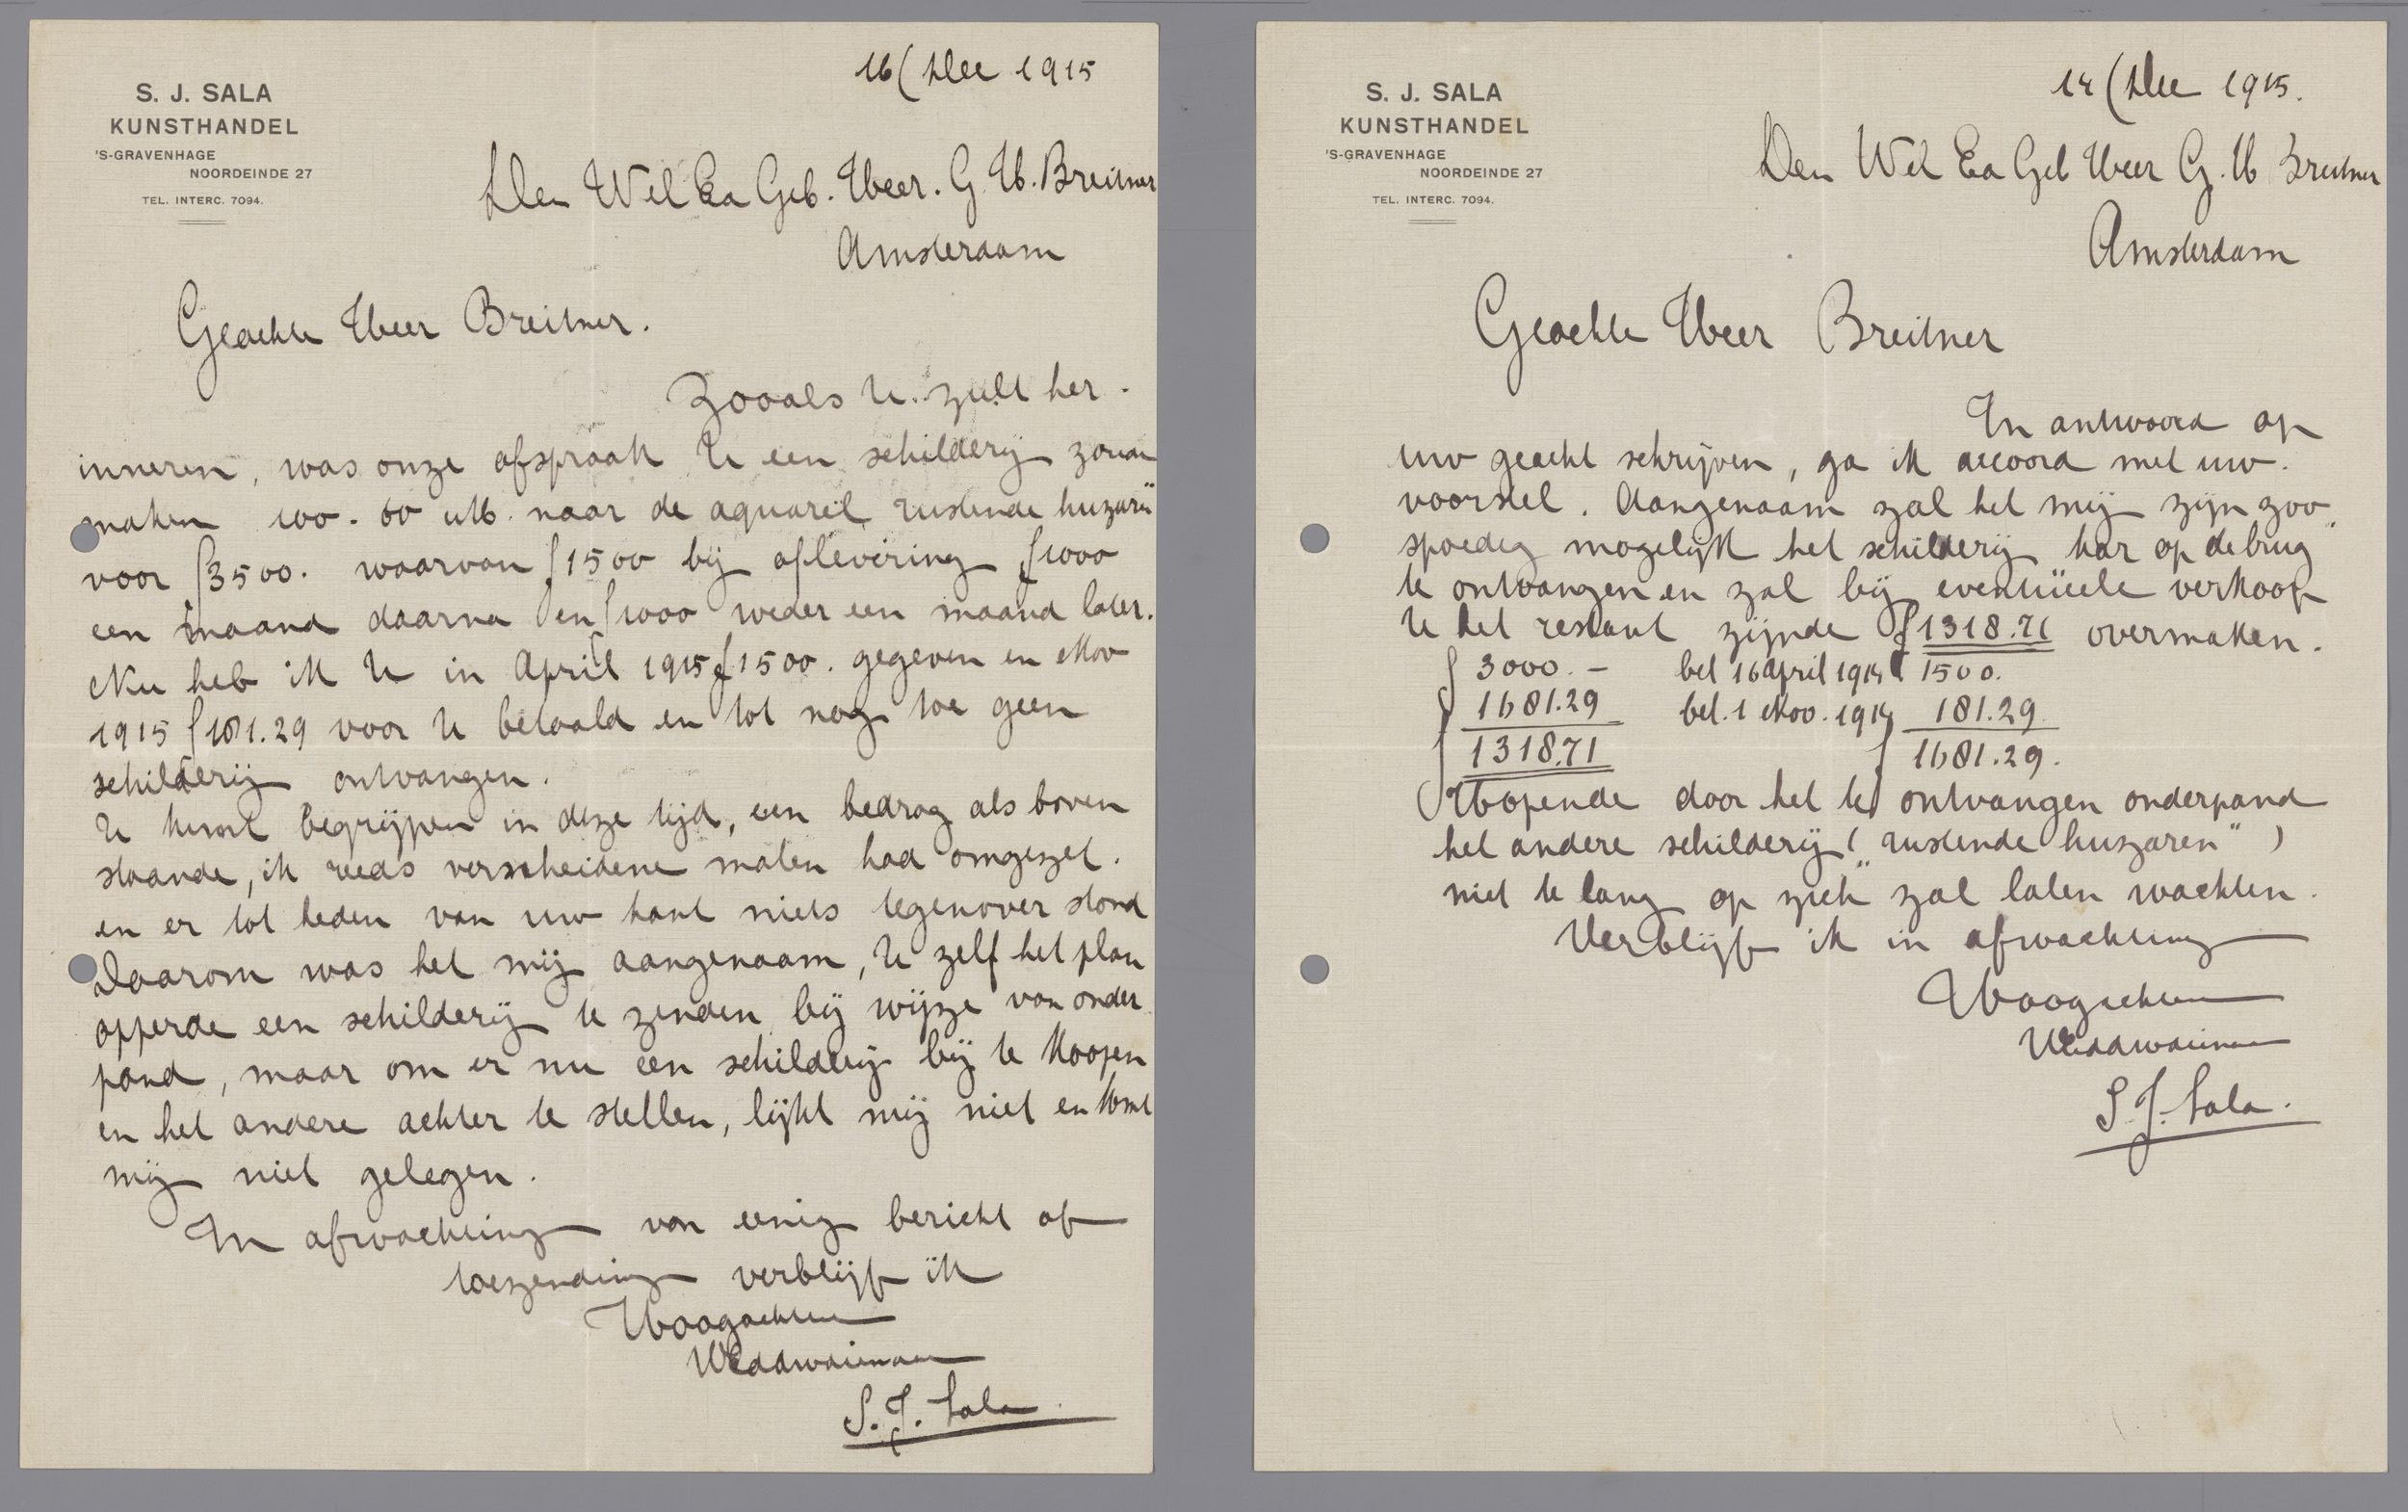 S. J. SALA
KUNSTHANDEL
'S-GRAVENHAGE
NOORDEINDE 27
TEL. INTERC. 7094.
16/Dec 1915
Den Wel Ed Geb. Heer. G. H. Breitner
Amsterdam
Geachte Heer Breitner.
Zooals U. zult her-
inneren, was onze afspraak U een schilderij zou
maken 100. 60 naar de aquarel rustende huzaren
voor ƒ3500. waarvan ƒ1500 bij aflevering ƒ1000
een maand daarna en ƒ1000 weder een maand later.
Nu heb ik U in April 1915 ƒ1500. gegeven en Nov
1915 ƒ181.29 voor U betaald en tot nog toe geen
schilderij ontvangen.
U kunt begrijpen in deze tijd, een bedrag als boven
staande, ik reeds verscheidene malen had omgezet.
en er tot heden van uw kant niets tegenover stond
Daarom was het mij aangenaam, U zelf het plan
opperde een schilderij te zenden bij wijze van onder
pand, maar om er nu een schilderij bij te koopen
en het andere achter te stellen, lijkt mij niet en komt
mij niet gelegen.
In afwachting van eenig bericht of
toezending verblijf ik
Hoogachtend
UEddwdienaar
S. J. Sala.
S. J. SALA
KUNSTHANDEL
'S-GRAVENHAGE
NOORDEINDE 27
TEL. INTERC. 7094.
14/Dec 1915.
Den Wel Ed Geb Heer G. H Breitner
Amsterdam
Geachte Heer Breitner
In antwoord op
uw geacht schrijven, ga ik accoord met uw.
voorstel. Aangenaam zal het mij zijn zoo
spoedig mogelijk het schilderij kar op de brug
te ontvangen en zal bij eventüeele verkoop
U het restant zijnde ƒ1318.71 overmaken.
ƒ 3000.- bet 16 april 1914 ƒ 1500.
1681.29 bet. 1 Nov. 1914 181.29
ƒ 1318.71 ƒ 1681.29.
Hopende door het te ontvangen onderpand
het andere schilderij („rustende huszaren")
niet te lang op zich zal laten wachten.
Verblijf ik in afwachting
Hoogachtend
UEddwdienaar
S. J. Sala.